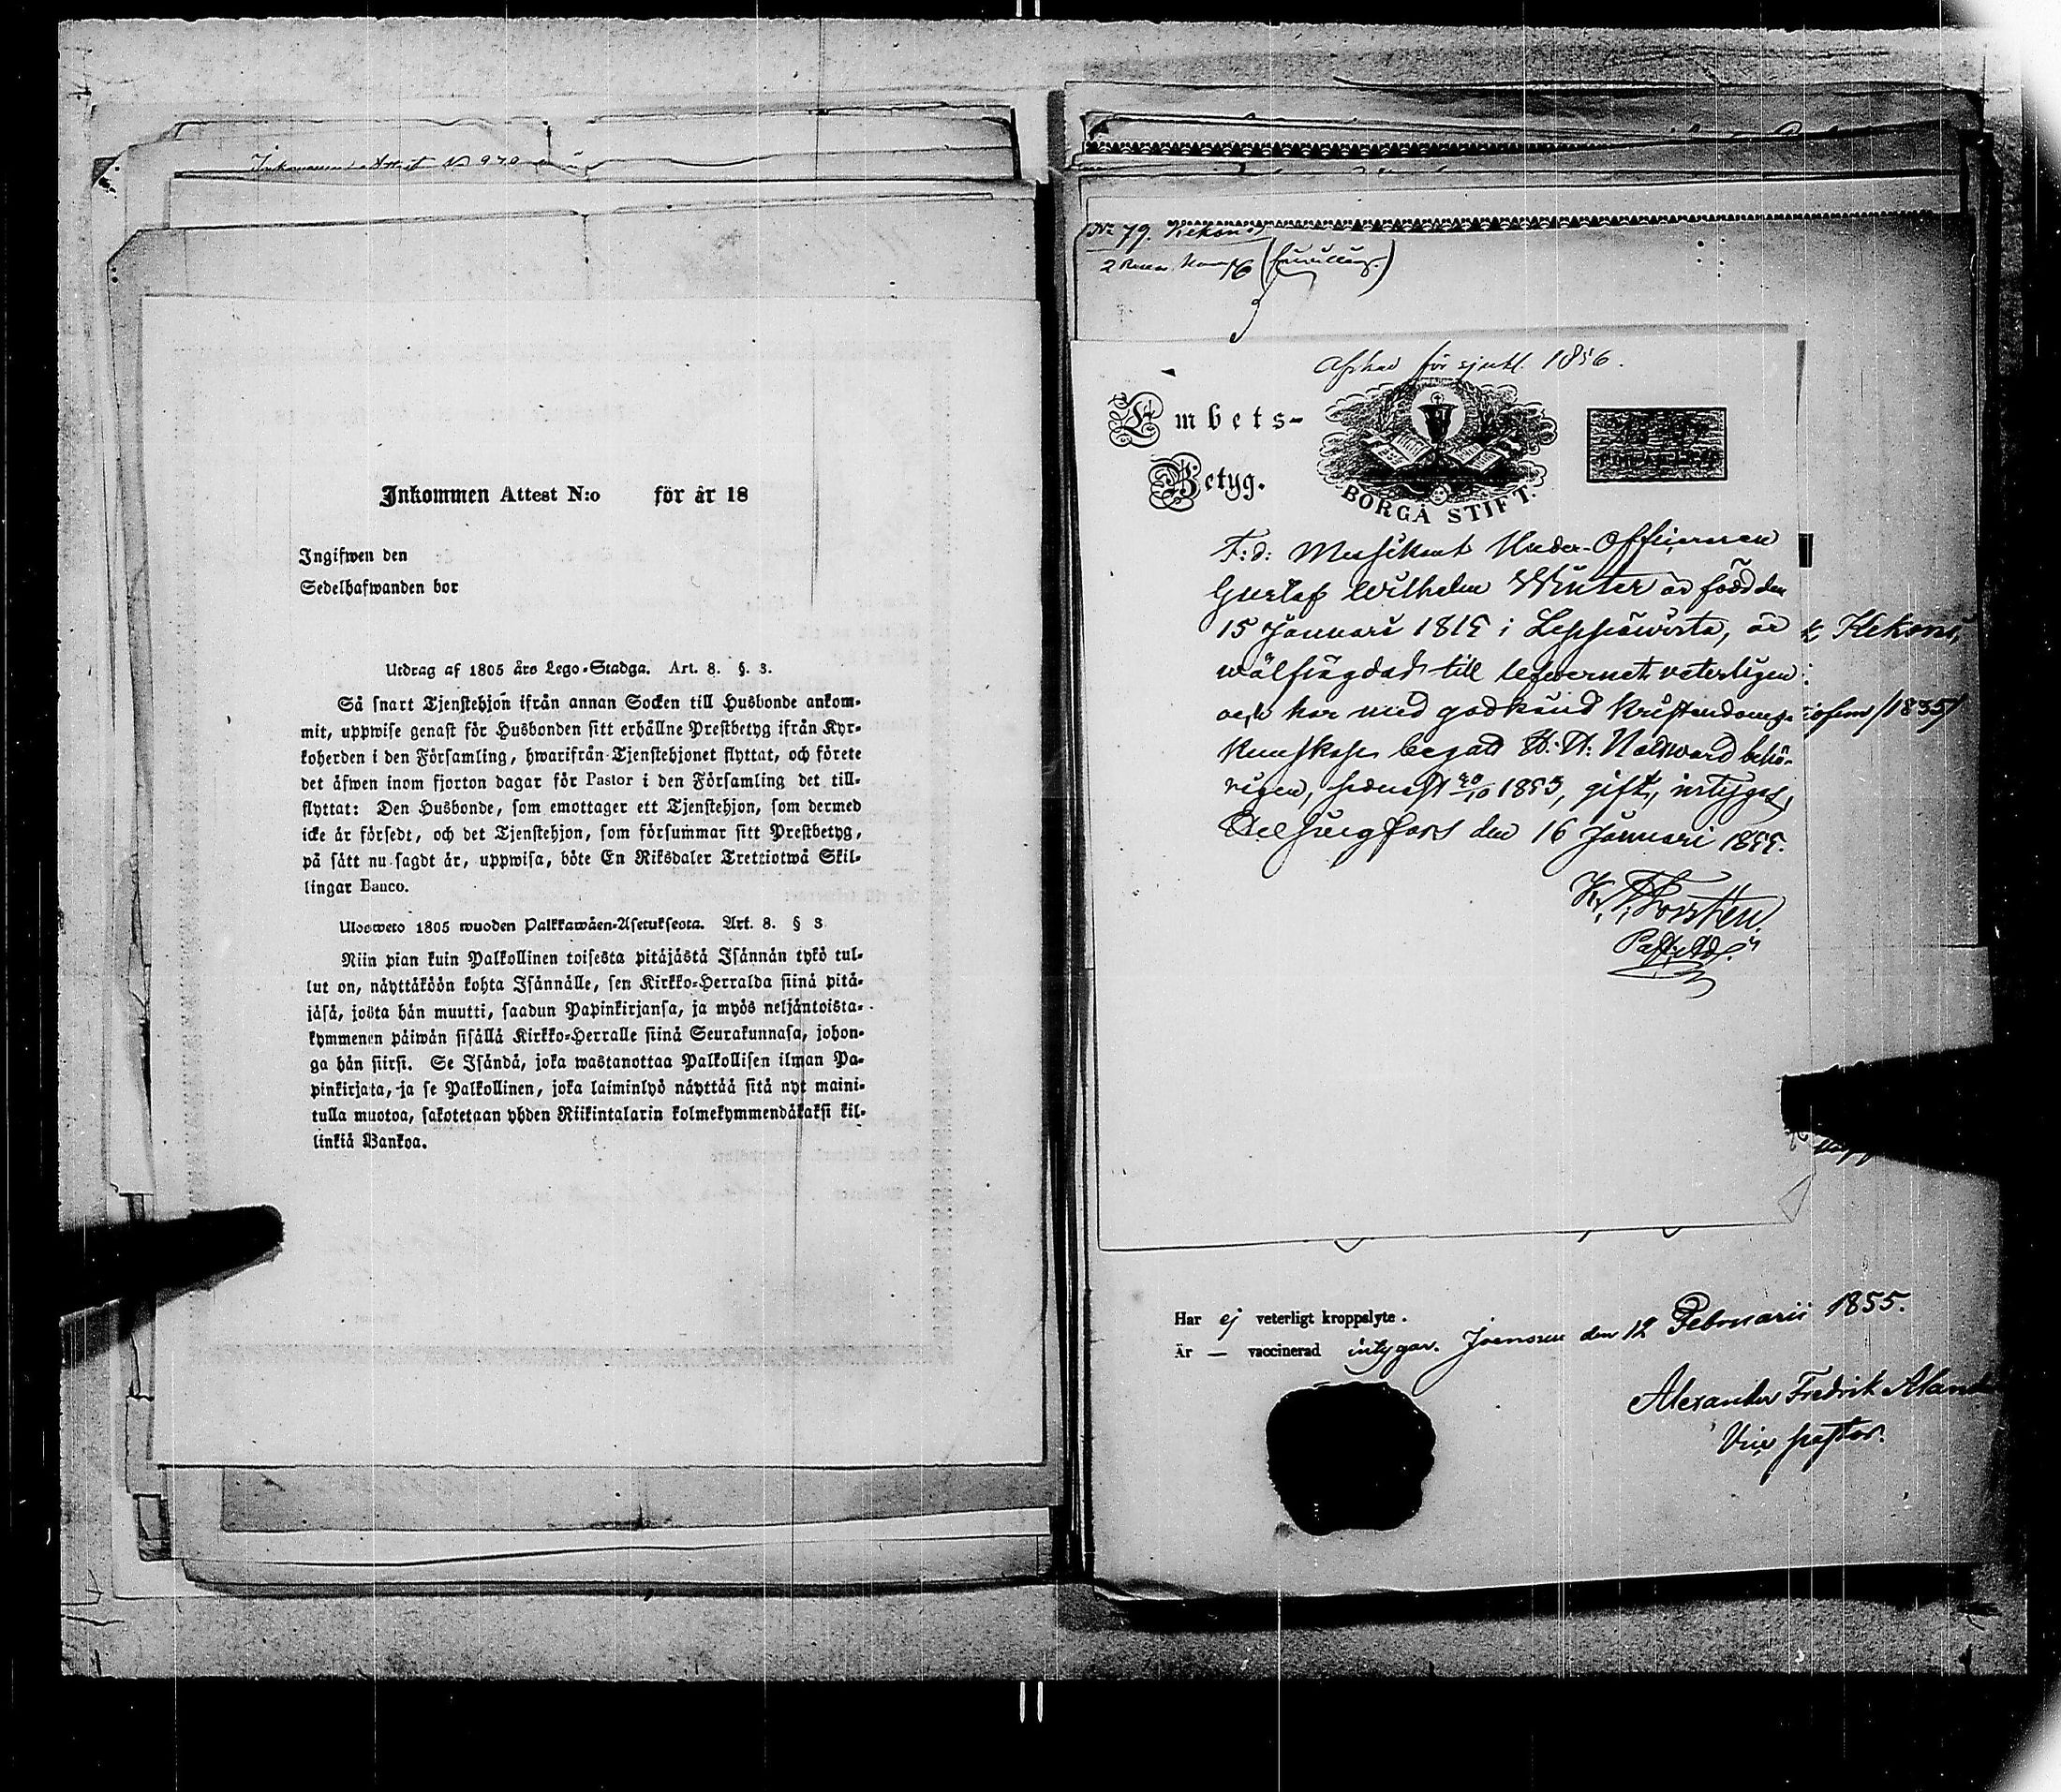 Inkommen Attest N:o för år 18
Ingifwen den
Sedelhafwanden bor
Utdrag af 1805 års Lego-Stadga. Art. 8. §. 3.
Så snart Tjenstehjon ifrån annan Socken till Husbonde ankom-
mit, uppwise genast för Husbonden sitt erhållne Prestbetyg ifrån Kyr-
koherden i den Församling, hwarifrån Tjenstehjonet flyttat, och förete
det äfwen inom fjorton dagar för Pastor i den Församling det till-
flyttat: Den Husbonde, som emottager ett Tjenstehjon, som dermed
icke är försedt, och det Tjenstehjon, som försummar sitt Prestbetyg,
på sätt nu sagdt är, uppwisa, böte En Riksdaler Trettiotwå Skil-
lingar Banco.
Ulosweto 1805 wuoden Palkkawäen-Asetuksesta. Art. 8. § 3
Niin pian kuin Palkollinen toisesta pitäjästä Isännän tykö tul-
lut on, näyttäköön kohta Isännälle, sen Kirkko-Herralda siinä pitä-
jäsä, josta hän muutti, saadun Papinkirjansa, ja myös neljäntoista-
kymmenen päiwän sisällä Kirkko-Herralle siinä Seurakunnasa, johon-
ga hän siirsi. Se Isändä, joka wastanottaa Palkollisen ilman Pa-
pinkirjata, ja se Palkollinen, joka laiminlyö näyttää sitä nyt maini-
tulla muotoa, sakotetaan yhden Riikintalarin kolmekymmendäkaksi kil-
linkiä Bankoa.
Inkommen Attest No 970
No 79. Kekoni
1856.
Embets-
Betyg.
BORGÅ STIFT.
F:d: Musikant Under-Officieren
Gustaf Wilhelm Winter är född den
15 Januari 1815 i Leppäwirta, är
wälfrägdad till lefwernet veterligen
och har med godkänd Kristendoms-
kunskap begått H. H. Nattward behö-
rigen, senast 30/10 1853, gift, intygas,
Helsingfors den 16 Januari 1855.
Kekoni,
/1835/
Har ej veterligt kroppslyte.
Är — vaccinerad intygar. Joensuu den 12 Februarii 1855.
Alexander Fredrik
Vice pastor.